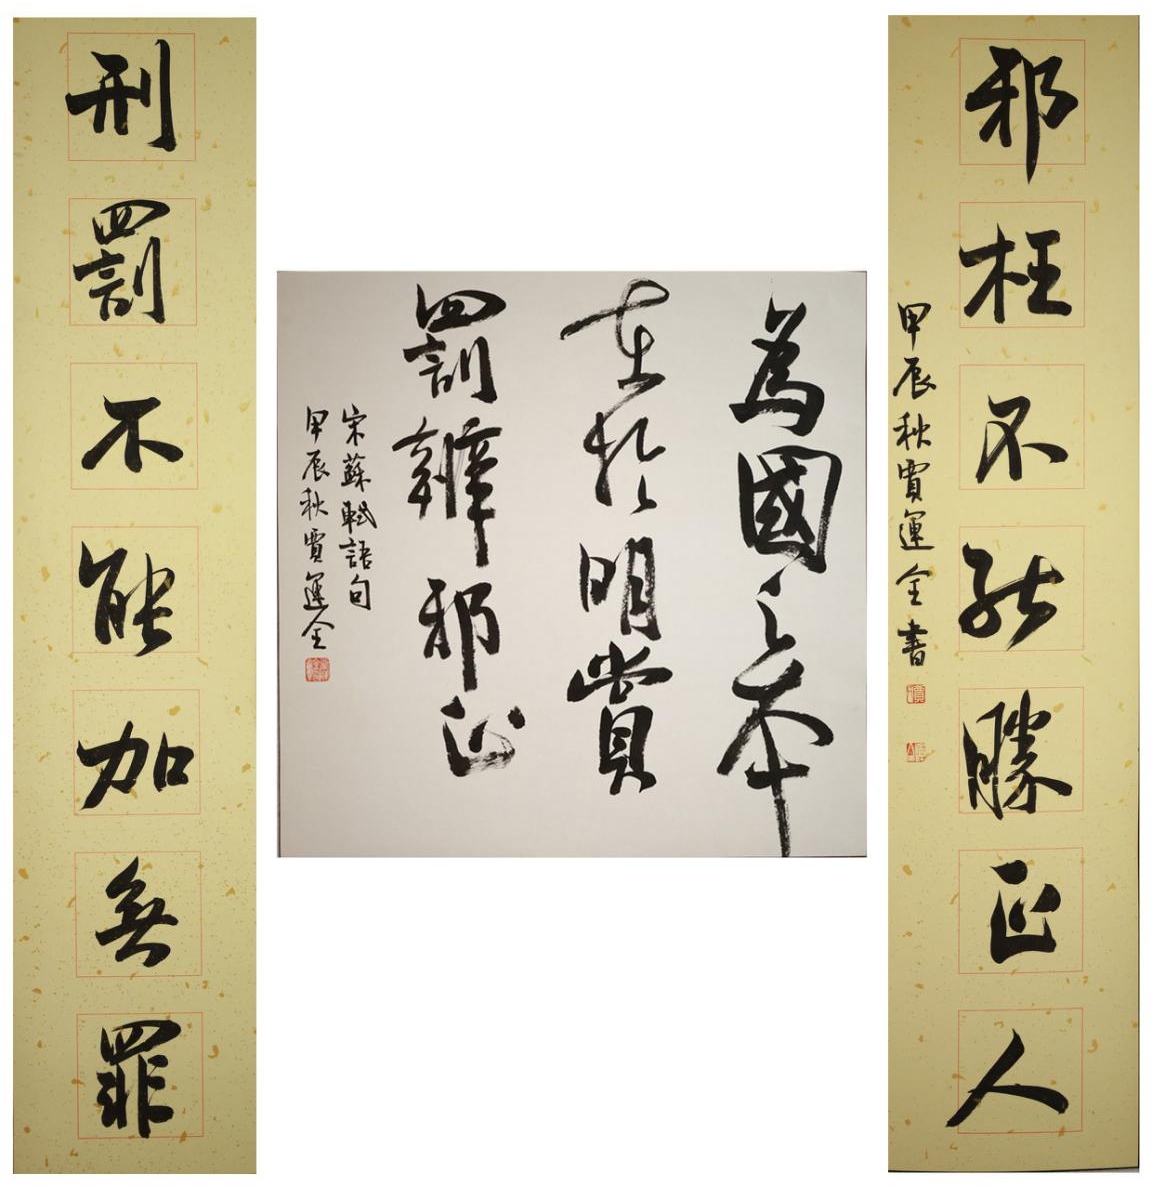 刑罰不能加無罪
為國之本
在於明賞
罰辨邪正
宋蘇軾語句
甲辰秋賈運全
邪枉不能勝正人
甲辰秋賈運全書